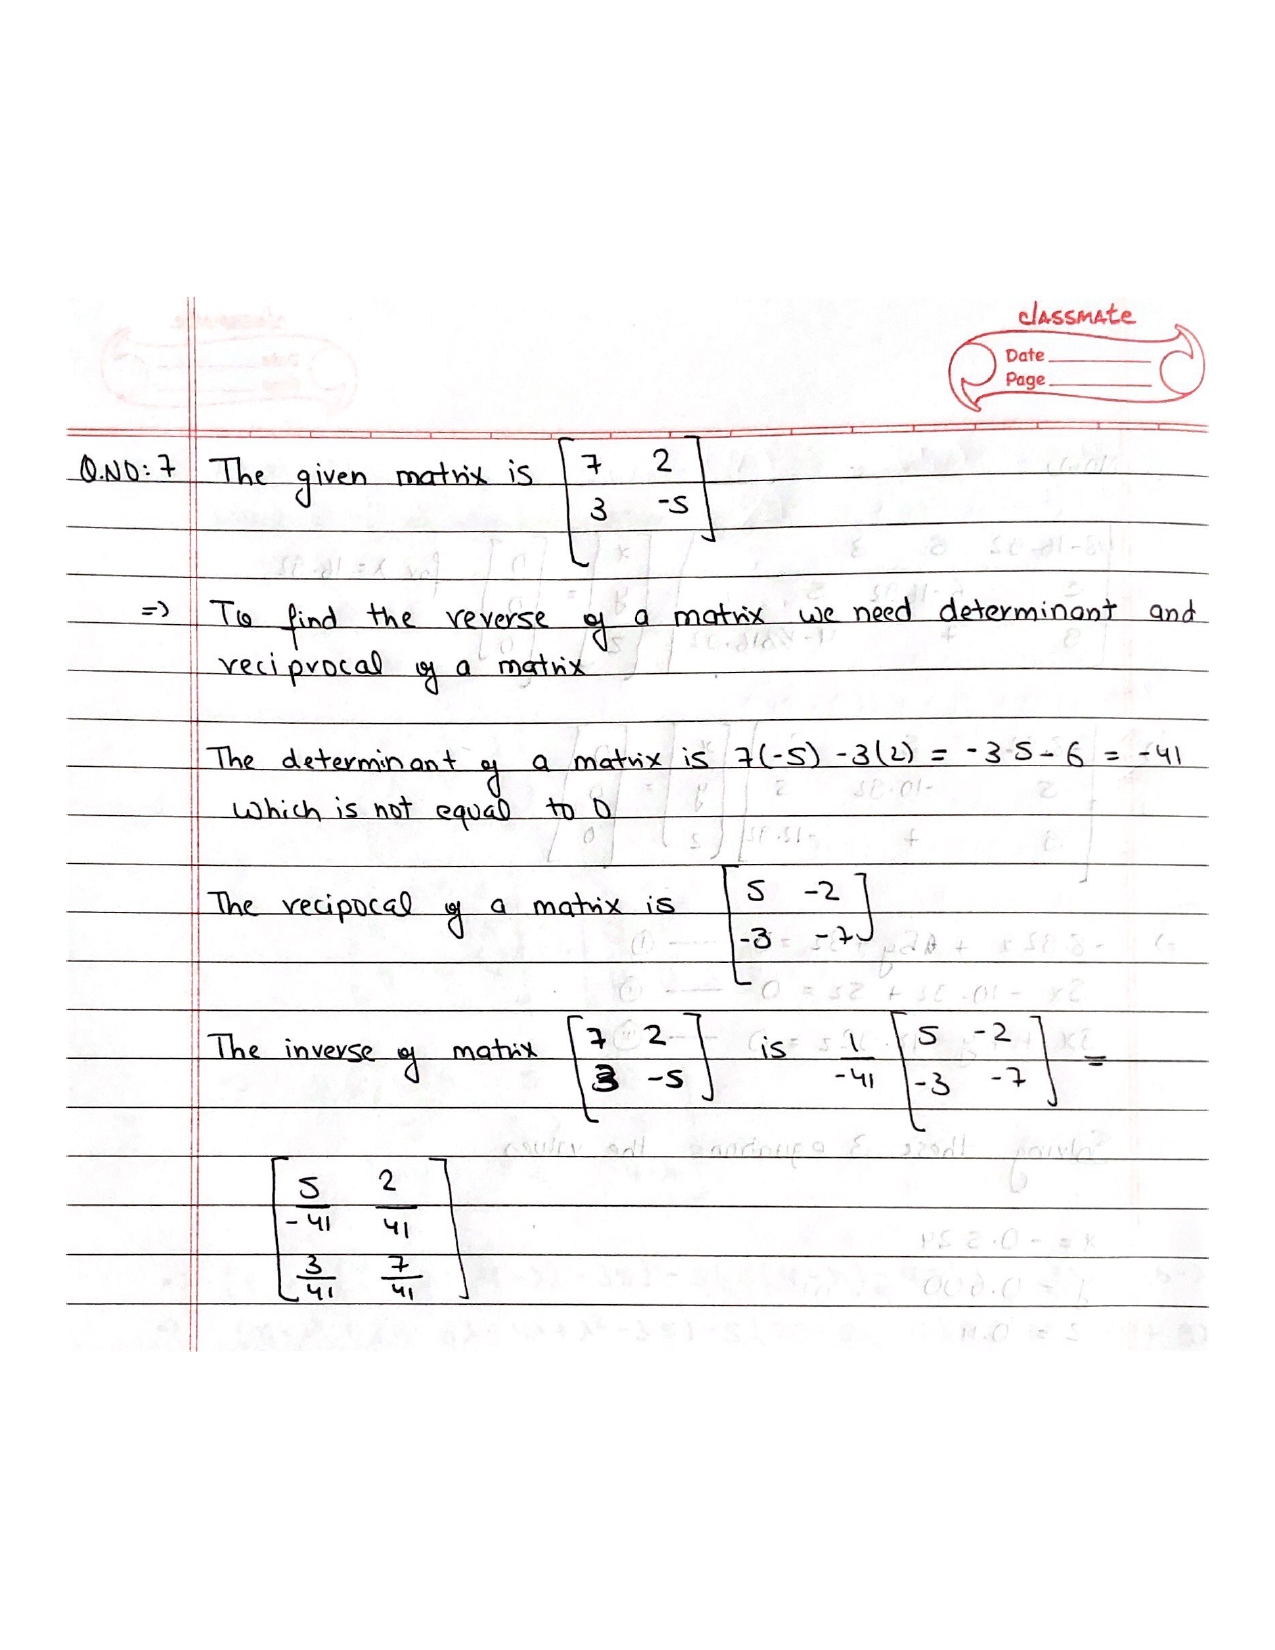 classmate
Date
Page
Q.NO: 7 The given matrix is [7 2
3 -5]
=> To find the reverse of a matrix we need determinant and
reciprocal of a matrix
The determinant of a matrix is 7(-5) -3(2) = -35 - 6 = -41
which is not equal to 0
The recipocal of a matrix is [5 -2
-3 -7]
The inverse of matrix [7 2
3 -5] is 1/-41 [5 -2
-3 -7] =
[5/-41 2/41
3/41 7/41]